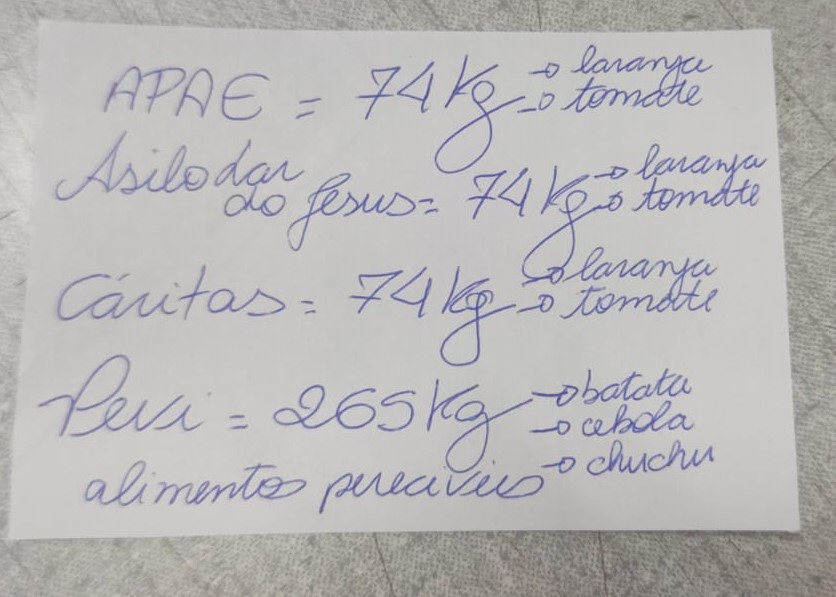 APAE = 74 Kg → laranja
→ tomate
Asilo dar
ao Jesus = 74 Kg → laranja
→ tomate
Cáritas = 74 Kg → laranja
→ tomate
= 265 Kg → batata
→ cebola
→ chuchu
alimentos perecíveis